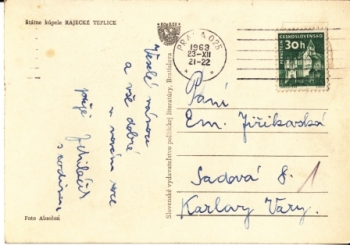 Štátne kúpele RAJECKÉ TEPLICE
Veselé vánoce
a vše dobré
v novém roce
přeje
s rodinou
Foto Aksmíni
Slovenské vydavateľstvo politickej literatúry, Bratislava
PRAHA 025
1963
23-XII
21-22
ČESKOSLOVENSKO
30h
Paní
Em. Jiříkovská
Sadová 8.
1
Karlovy Vary.